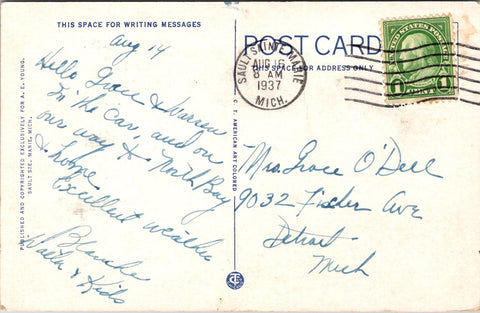 THIS SPACE FOR WRITING MESSAGES
Aug 14
Hello Grace & Warren
In the car, and on
our way to North Bay
& home
Excellent weather
Blanche
Walter & Kids
PUBLISHED AND COPYRIGHTED EXCLUSIVELY FOR A. E. YOUNG,
SAULT STE. MARIE, MICH.
C. T. AMERICAN ART COLORED
POST CARD
THIS SPACE FOR ADDRESS ONLY
SAULT SAINTE MARIE
AUG 16
8 AM
1937
MICH.
UNITED STATES POSTAGE
1 1
Mrs. Grace O'Dell
9032 Fischer Ave
Detroit
Mich